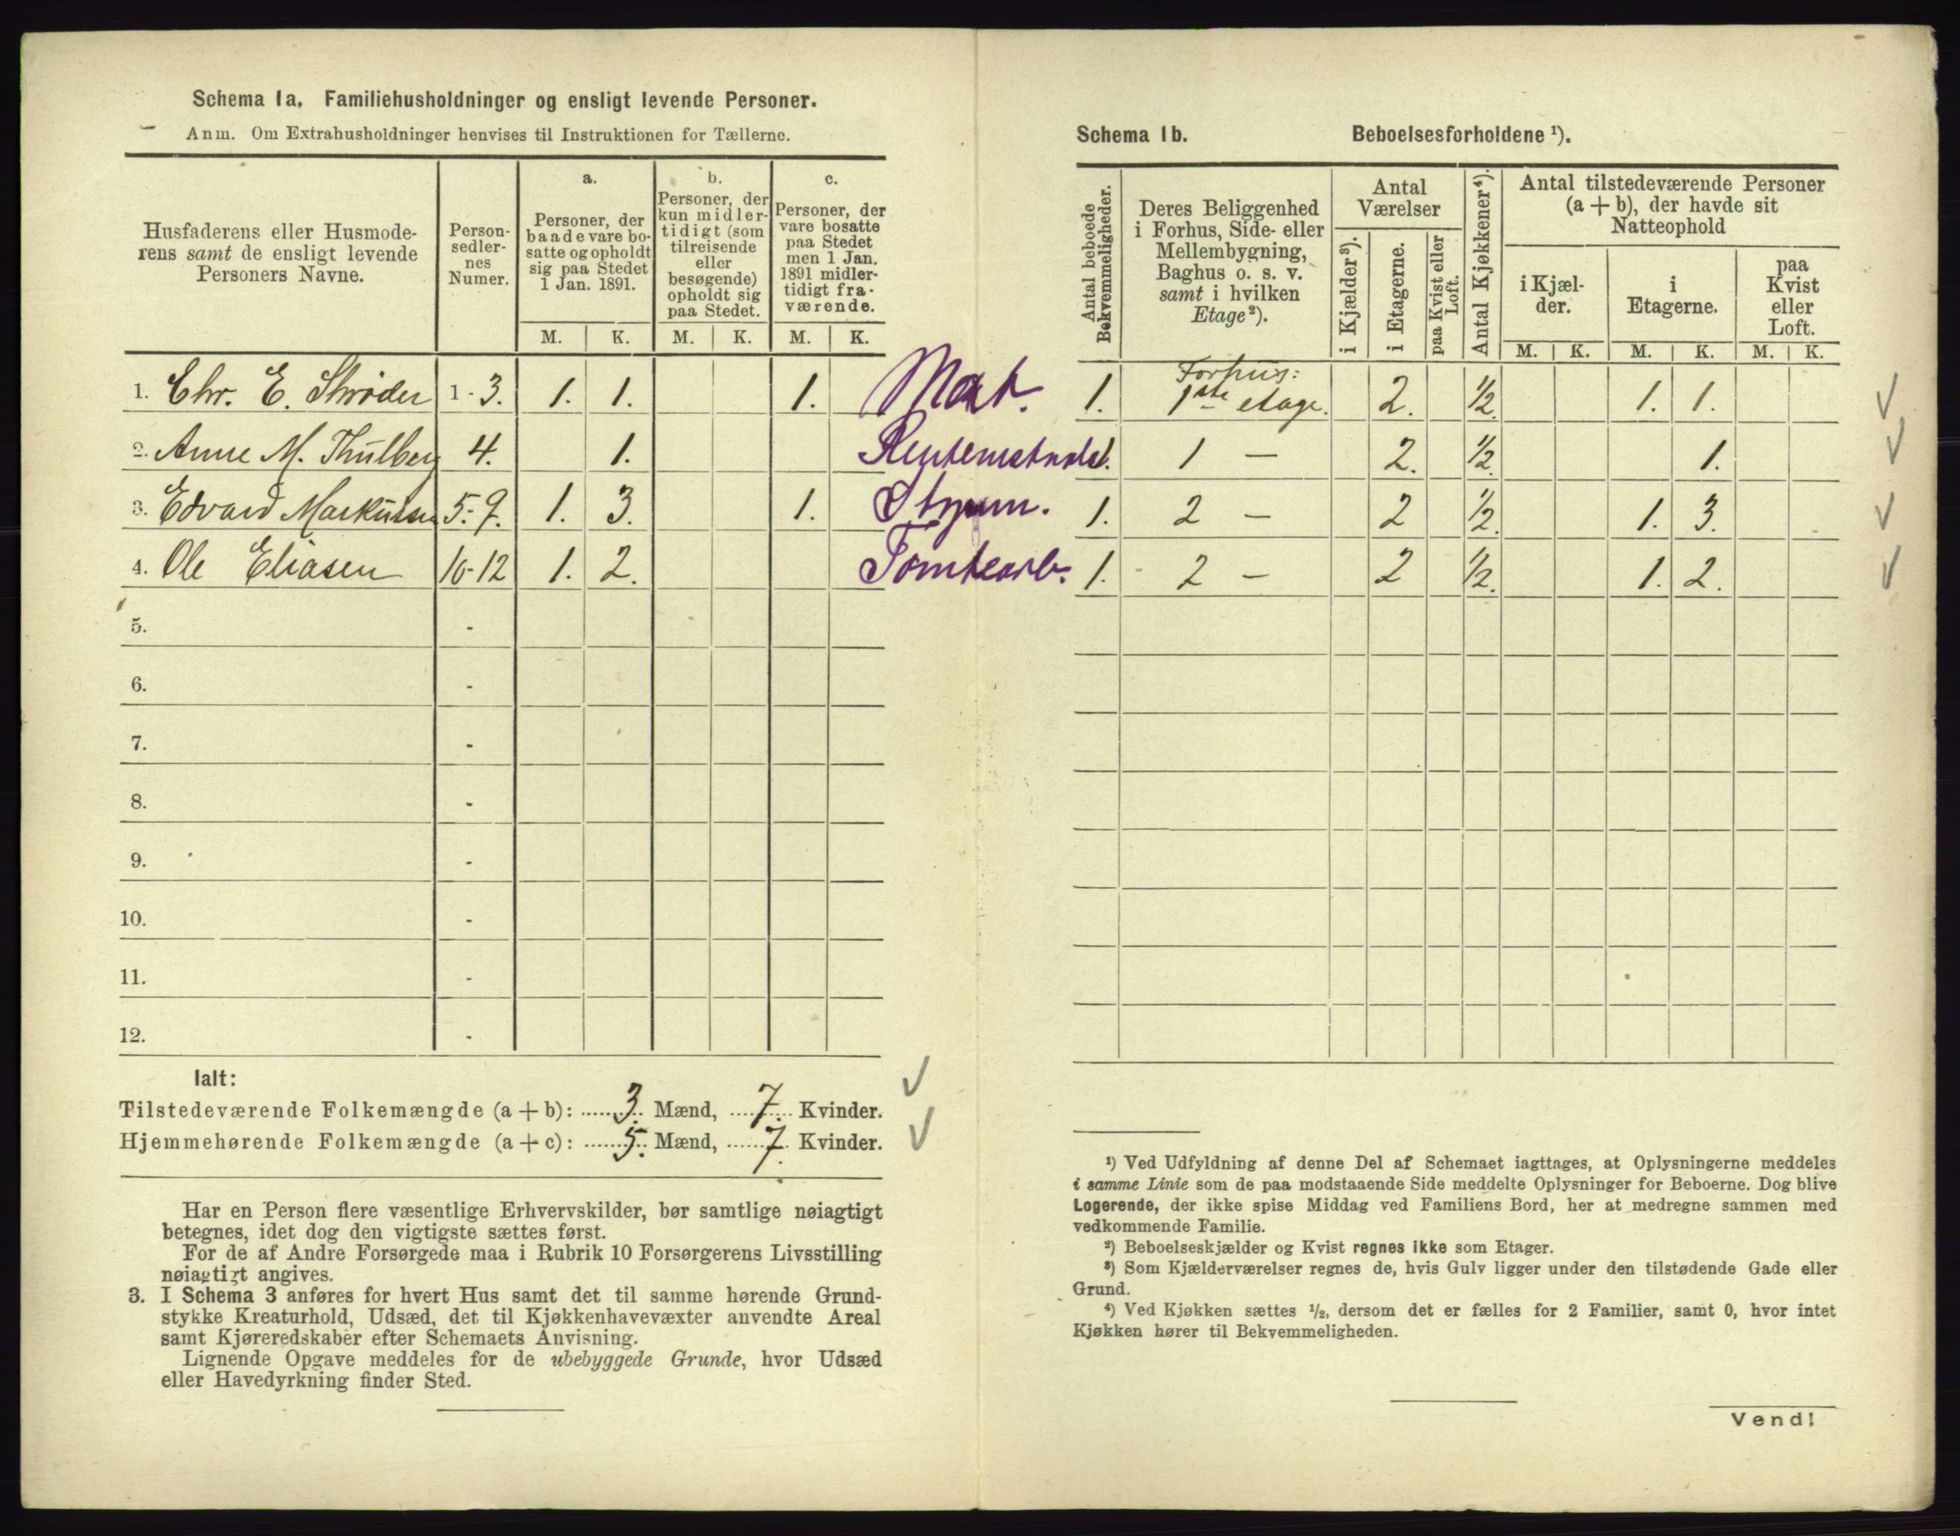 Schema 1a. Familiehusholdninger og ensligt levende Personer.
Anm. Om Extrahusholdninger henvises til Instruktionen for Tællerne.
Husfaderens eller Husmoderens samt de ensligt levende Personers Navne.
Personsedlernes Numer.
a. Personer, der baade vare bosatte og opholdt sig paa Stedet 1 Jan. 1891.
b. Personer, der kun midlertidigt (som tilreisende eller besøgende) opholdt sig paa Stedet.
c. Personer, der vare bosatte paa Stedet men 1 Jan. 1891 midlertidigt fraværende.
M. K. M. K. M. K.
1. Chr. E. Strøder 1-3. 1. 1. 1. Mat.
2. Anne M. Thulberg 4. 1.
3. Edvard Markussen 5-9. 1. 3. 1. Styrm.
4. Ole Eliasen 10-12 1. 2. Tomtearb.
5. -
6. -
7. -
8. -
9. -
10. -
11. -
12. -
Ialt:
Tilstedeværende Folkemængde (a + b): 3. Mænd, 7. Kvinder.
Hjemmehørende Folkemængde (a + c): 5. Mænd, 7. Kvinder.
Har en Person flere væsentlige Erhvervskilder, bør samtlige nøiagtigt
betegnes, idet dog den vigtigste sættes først.
For de af Andre Forsørgede maa i Rubrik 10 Forsørgerens Livsstilling
nøiagtigt angives.
3. I Schema 3 anføres for hvert Hus samt det til samme hørende Grund-
stykke Kreaturhold, Udsæd, det til Kjøkkenhavevæxter anvendte Areal
samt Kjøreredskaber efter Schemaets Anvisning.
Lignende Opgave meddeles for de ubebyggede Grunde, hvor Udsæd
eller Havedyrkning finder Sted.
Schema 1b. Beboelsesforholdene ¹).
Antal beboede Bekvemmeligheder.
Deres Beliggenhed i Forhus, Side- eller Mellembygning, Baghus o. s. v. samt i hvilken Etage ²).
Antal Værelser
i Kjælder ³).
i Etagerne.
paa Kvist eller Loft.
Antal Kjøkkener ⁴).
Antal tilstedeværende Personer (a + b), der havde sit Natteophold
i Kjælder.
i Etagerne.
paa Kvist eller Loft.
M. K. M. K. M. K.
1. Forhus: 1ste etage. 2. ½. 1. 1.
1. 1 — 2. ½. 1.
1. 2 — 2 ½. 1. 3.
1. 2 — 2 ½. 1. 2.
¹) Ved Udfyldning af denne Del af Schemaet iagttages, at Oplysningerne meddeles
i samme Linie som de paa modstaaende Side meddelte Oplysninger for Beboerne. Dog blive
Logerende, der ikke spise Middag ved Familiens Bord, her at medregne sammen med
vedkommende Familie.
²) Beboelseskjælder og Kvist regnes ikke som Etager.
³) Som Kjælderværelser regnes de, hvis Gulv ligger under den tilstødende Gade eller
Grund.
⁴) Ved Kjøkken sættes ½, dersom det er fælles for 2 Familier, samt 0, hvor intet
Kjøkken hører til Bekvemmeligheden.
Vend!